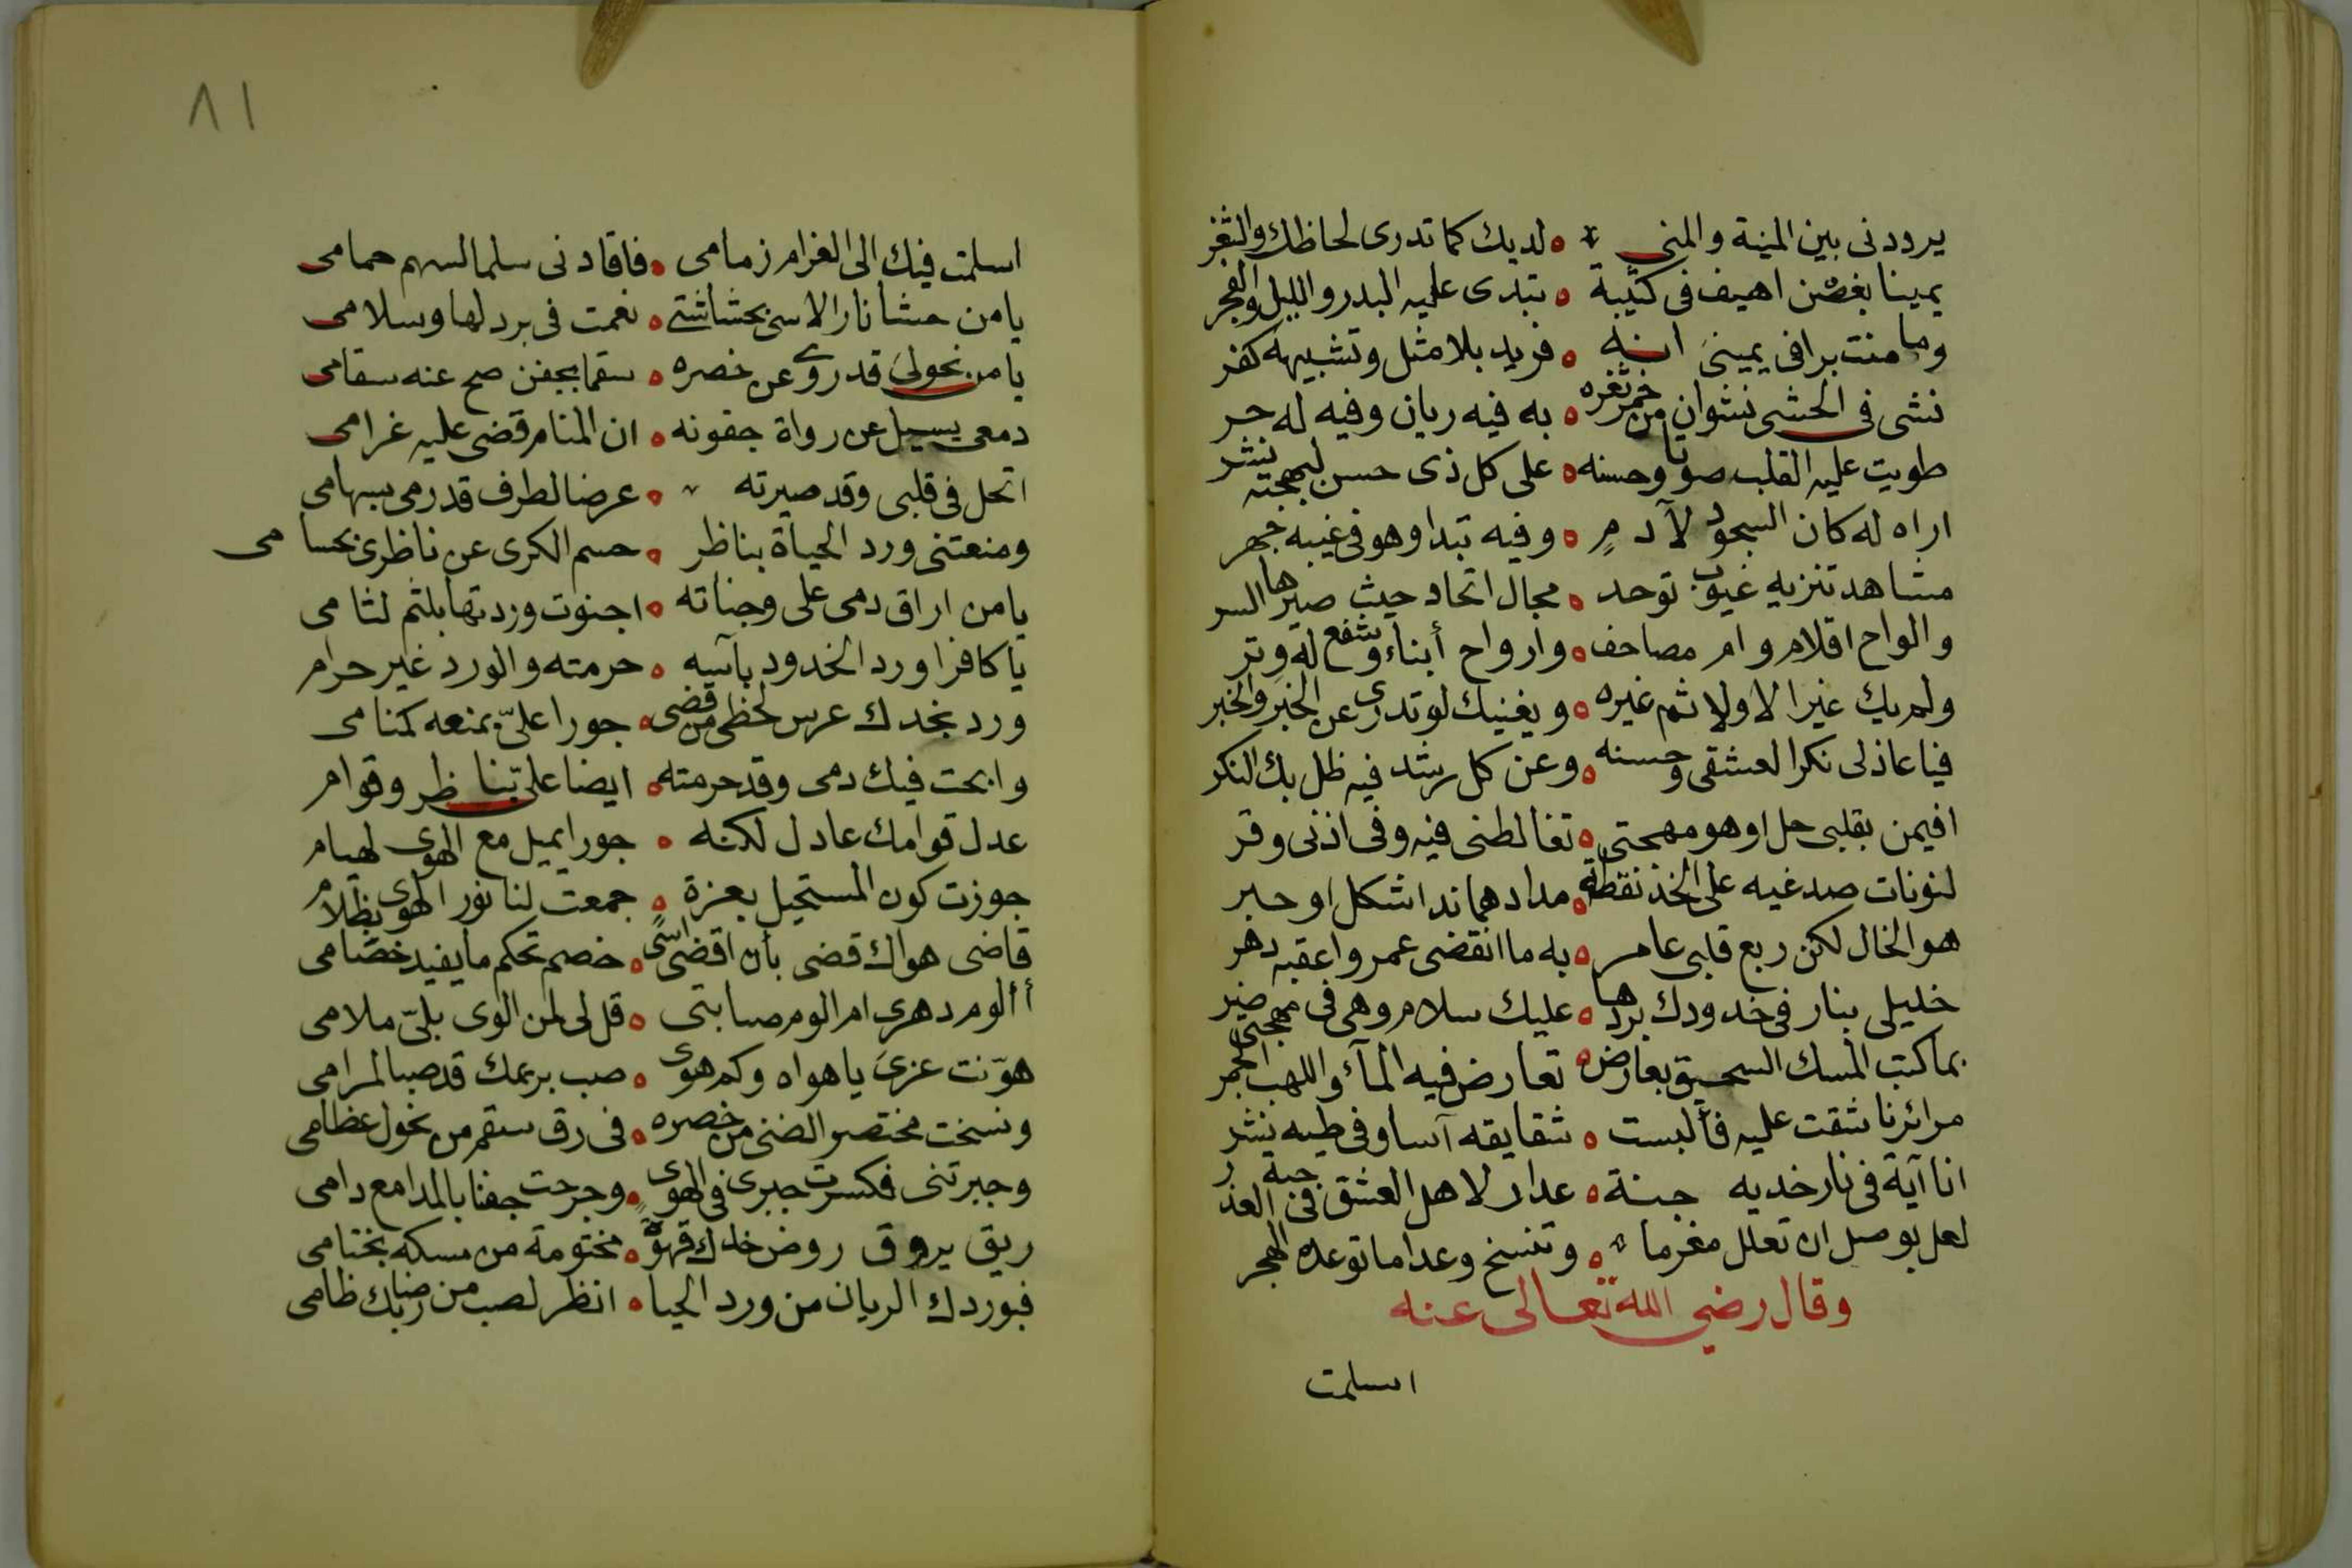 يرودنى بين المنية والمنى لديك كما تدرى لحاظك والثغر
يمينا بغصن اهيف فى كثيبة تبدى عليه البدر والليل والفجر
وما منت برا فى يمينى انه فريد بلا مثل وتشبيهه كفر
نشى فى الحشى نشوان من خمر ثغره به فيه ريان وفيه له حر
طويت عليه القلب صونا وحسنه على كل ذى حسن لبهجته نشر
اراه له كان السجود لآدمٍ وفيه تبدا وهو فى غيبه جهر
مشاهد تنزيه غيوب توحد مجال اتحاد حيث صيرها السر
والواح اقلام وام مصاحف وارواح أبناء وشفع له وتر
ولم يك غير الا ولا ثم غيره ويغنيك لو تدرى عن الخبر والخبر
فيا عاذلى نكرا لعشقى وحسنه وعن كل رشد فيه ظل بك النكر
افيمن بقلبى حل او هو مهجتى تغالطنى فيه وفى اذنى وقر
لنونات صدغيه على الخد نقطة مدادهما ند اشكل او حبر
هو الخال لكن ربع قلبى عامر به ما انقضى عمر واعقبه دهر
خليلى بنار فى خدودك بردها عليك سلام وهى فى مهجتى
بما كتب المسك السحيق بعارض تعارض فيه المآء واللهب الجمر
مرائرنا شقت عليه فألبست شقايقه آسا وفى طيه نشر
انا آية فى نار خديه جنة عدار لاهل العشق فى حبه العذر
لعل بوصل ان تعلل مغرما وتنسخ وعدا ما توعده الهجر
وقال رضي الله تعالى عنه
اسلمت
٨١
اسلمت فيك الى الغرام زمامى فاقادنى سلما لسهم حمامى
يا من حشا نار الاسى بحشاشتى نعمت فى برد لها وسلامى
يا من نحولى قد روى عن خصره سقما بجفن صح عنه سقامى
دمعى يسيل عن رواة جفونه ان المنام قضى عليه غرامى
اتحل فى قلبى وقد صيرته عرضا لطرف قد رمى بسهامى
ومنعتنى ورد الحياة بناظر حسم الكرى عن ناظرى بحسامى
يا من اراق دمى على وجناته اجنوت وردتها بلثم لثامى
يا كافرا ورد الخدود بآسه حرمته والورد غير حرام
ورد بخدك عرس لحظى من قضى جورا علىّ بمنعه كمنامى
وابحت فيك دمى وقد حرمته ايضا علىّ بناظر وقوام
عدل قوامك عادل لكنه جورا يميل مع الهوى لهيام
جوزت كون المستحيل بعزة جمعت لنا نور الهوى بظلام
قاضى هواك قضى بأن اقضى اسًى خصم تحكم ما يفيد خصامى
أألوم دهرى ام الوم صبابتى قل لى لمن الوى بلىّ ملامى
هوّنت عزى يا هواه وكم هوى صب بريمك قد صبا لمرامى
ونسخت مختصر الضنى من خصره فى رق سقم من نحول عظامى
وجبرتنى فكسرت جبرى فى الهوى وجرحت جفنا بالمدامع دامى
ريق يروق روض خدك قهوة مختومة من مسكه بختامى
فبوردك الريان من ورد الحيا انظر لصب من رضابك ظامى